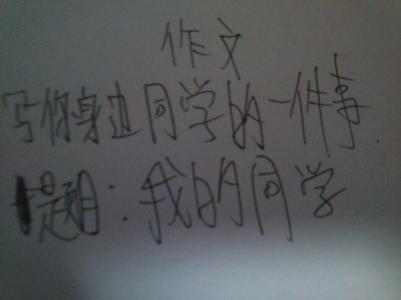 作文
写你身边同学的一件事.
题目:我的同学